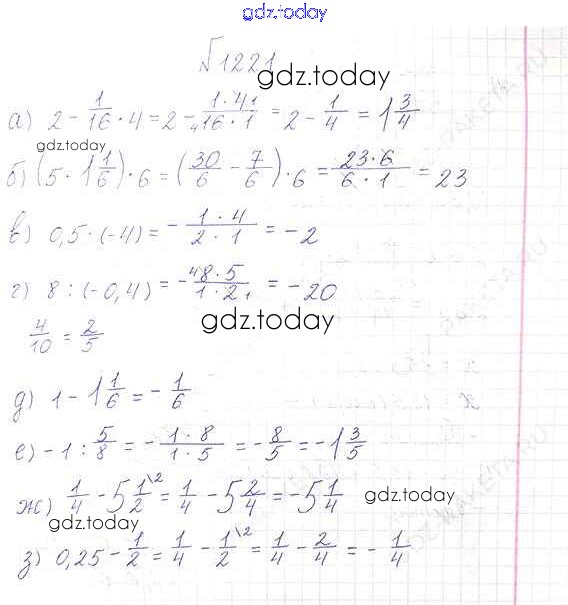 gdz.today
№1221
gdz.today
а) 2 - 1/16 · 4 = 2 - 1·4 1/4 16·1 = 2 - 1/4 = 1 3/4
gdz.today
б) (5 · 1 1/6) · 6 = (30/6 - 7/6) · 6 = 23·6/6·1 = 23
в) 0,5 · (-4) = - 1·4/2·1 = -2
г) 8 : (-0,4) = - 4 8·5/1·2 1 = -20
gdz.today
4/10 = 2/5
д) 1 - 1 1/6 = - 1/6
е) -1 : 5/8 = - 1·8/1·5 = - 8/5 = -1 3/5
ж) 1/4 - 5 1/2 \2 = 1/4 - 5 2/4 = -5 1/4
gdz.today
gdz.today
з) 0,25 - 1/2 = 1/4 - 1/2 \2 = 1/4 - 2/4 = - 1/4